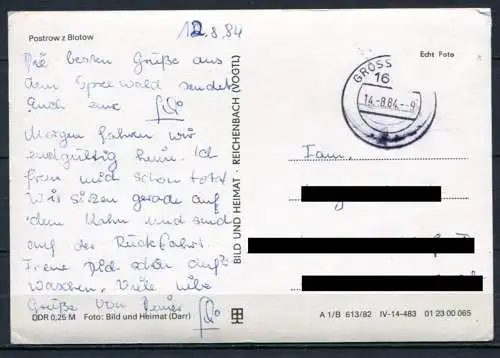 Postrow z Błotow
12.8.84
Die besten Grüße aus
dem Spreewald sendet
Euch
Morgen fahren wir
endgültig heim. Ich
freu mich schon total
Wir sitzen gerade auf
dem Kahn und sind
auf der Rückfahrt.
Dich schön
Viele liebe
Grüße von
DDR 0,25 M Foto: Bild und Heimat (Darr)
BILD UND HEIMAT · REICHENBACH (VOGTL)
Echt Foto
GROSS
16
14.-8.84.--9
Fam.
A 1/B 613/82 IV-14-483 01 23 00 065